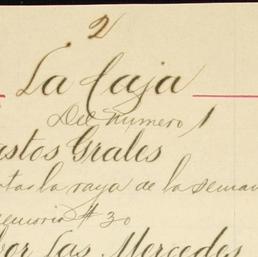 2
La Caja
Del numero 1
astos Grales
la raya de la seman
emoria #30
bor Las Mercedes